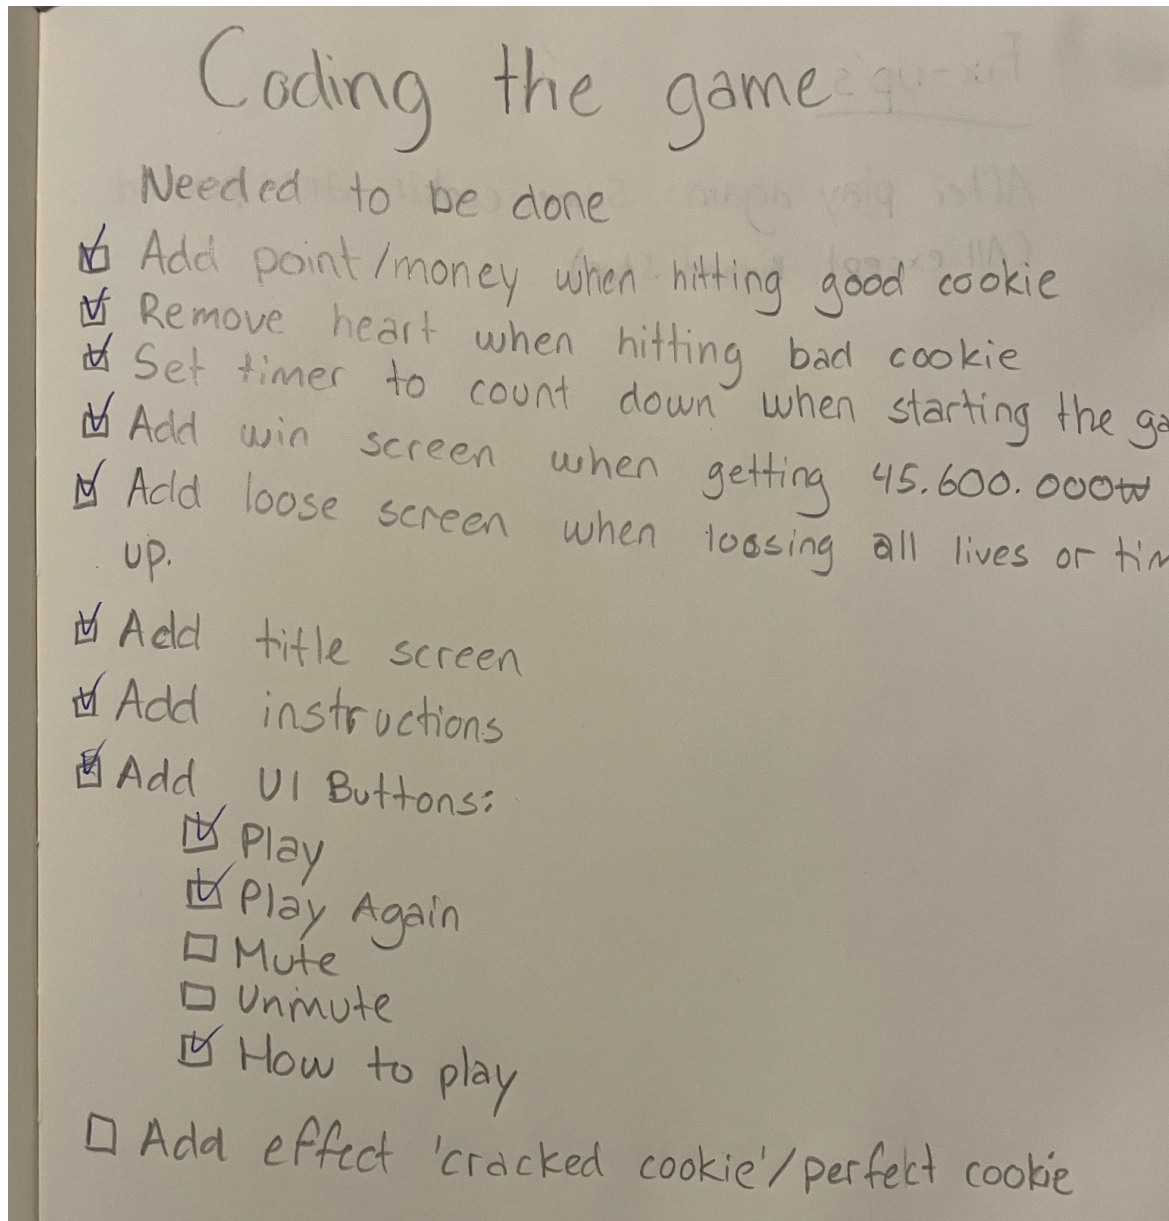 Coding the game
Needed to be done
☑ Add point/money when hitting good cookie
☑ Remove heart when hitting bad cookie
☑ Set timer to count down when starting the ga
☑ Add win screen when getting 45.600.000₩
☑ Add loose screen when loosing all lives or tim
up.
☑ Add title screen
☑ Add instructions
☑ Add UI Buttons:
☑ Play
☑ Play Again
☐ Mute
☐ Unmute
☑ How to play
☐ Add effect 'cracked cookie'/perfekt cookie